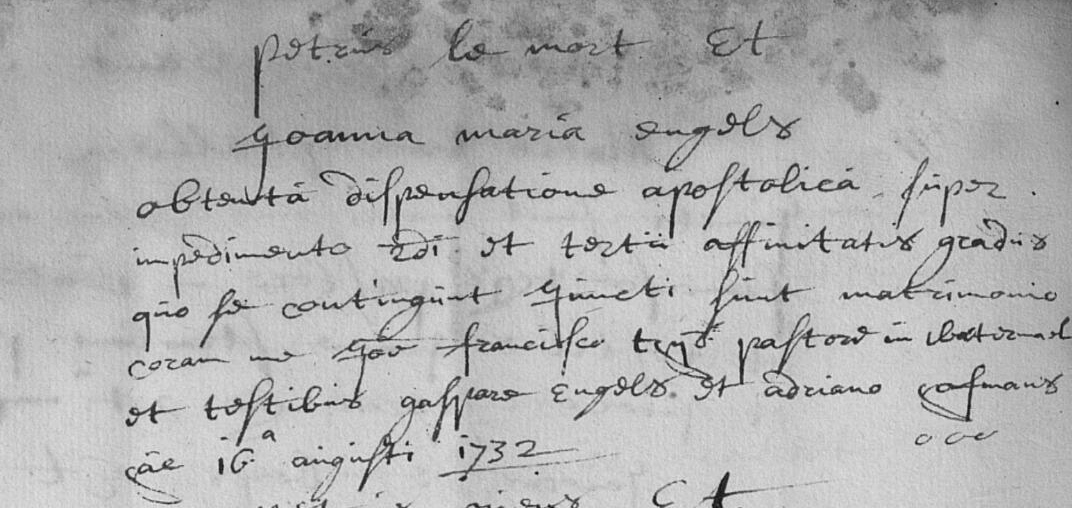 petrus le mort Et
Joanna maria engels
obtentâ dispensatione apostolicâ super
impedimento 2di et tertii affinitatis gradûs
quo se contingunt juncti sunt matrimonio
coram me Joe francisco pastore in
et testibus gaspare Engels et adriano
hac 16a augusti 1732
Et